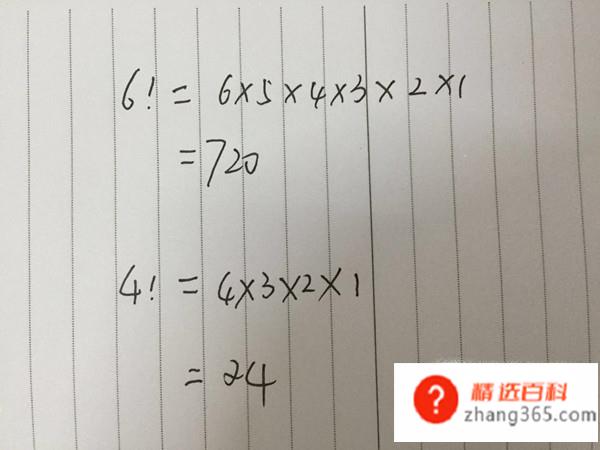 6! = 6×5×4×3×2×1
=720
4! = 4×3×2×1
= 24
精选百科
zhang365.com